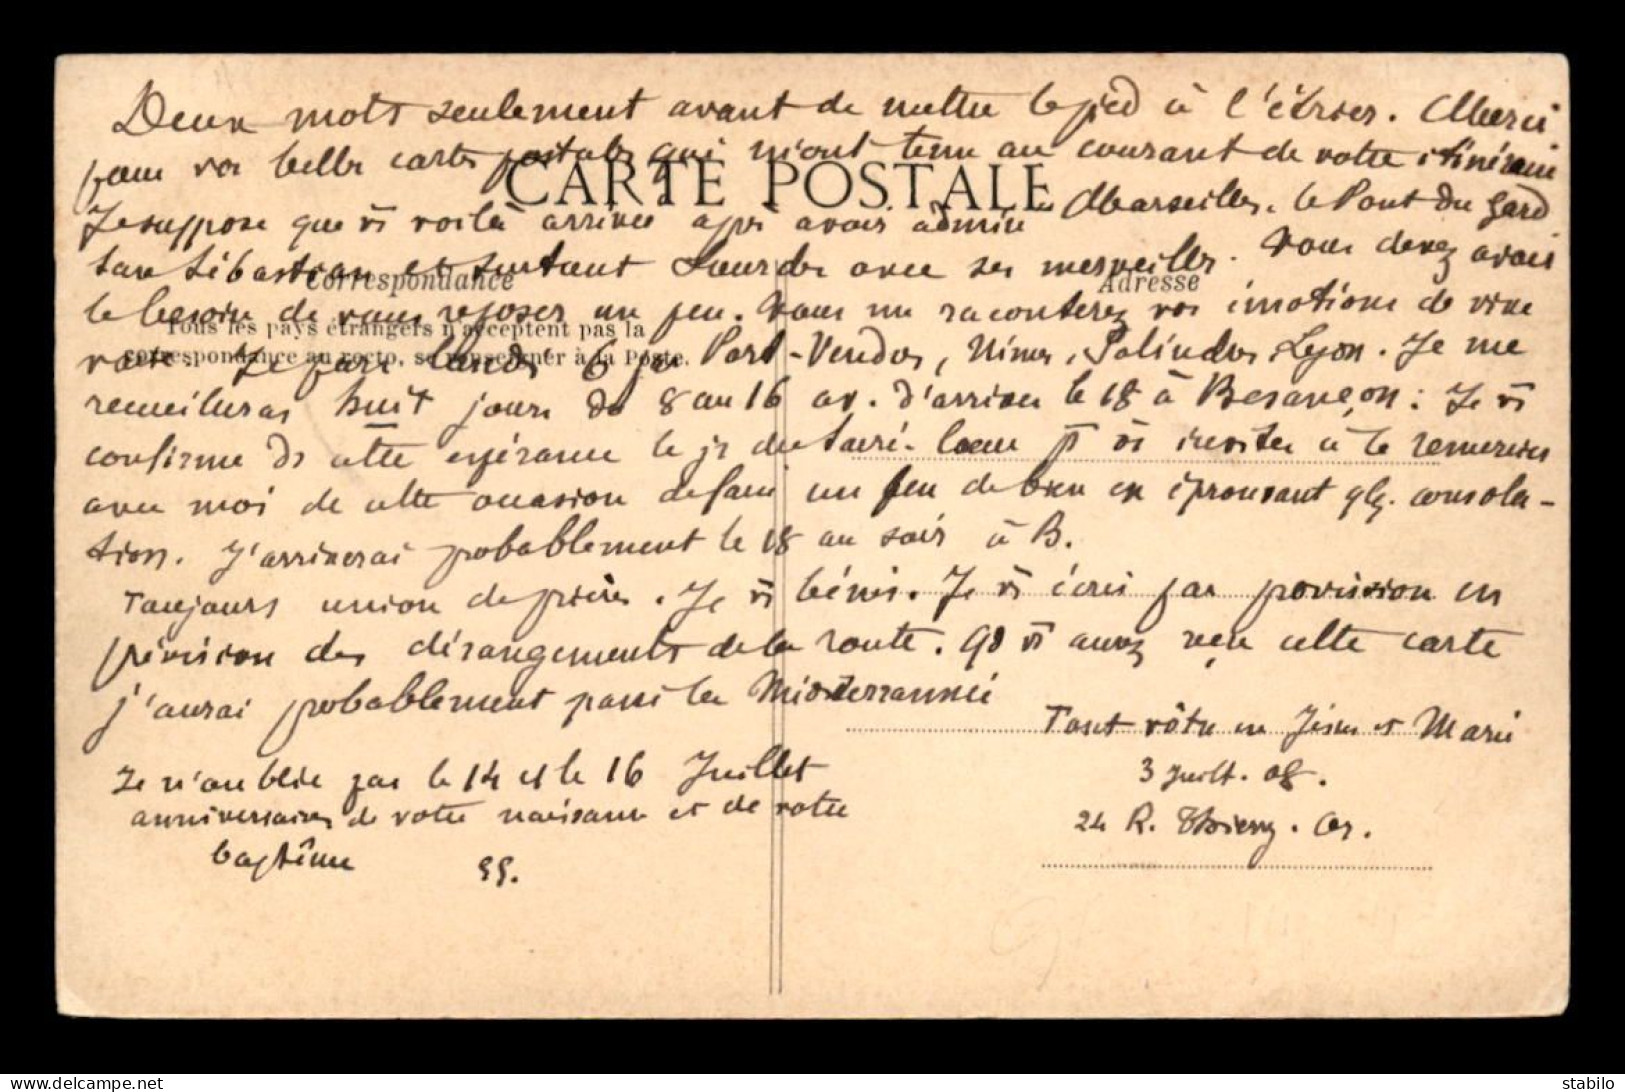 Deux mots seulement avant de mettre le pied à l'étrier. Merci
pour vos belles cartes postales qui m'ont tenu au courant de votre itinéraire
CARTE POSTALE
Je suppose que vs voilà arrivée après avoir admiré Marseille, le Pont du Gard
San Sébastian et surtout Lourdes avec ses merveilles. Vous devez avoir
Correspondance
Adresse
le besoin de vous reposer un peu. Vous me raconterez vos émotions de vive
Tous les pays étrangers n'acceptent pas la
correspondance au recto, se renseigner à la Poste.
voix. Je pars lundi 6 par Port-Vendres, Nimes, Lyon. Je me
recueillerai huit jours du 8 au 16 av. d'arriver le 18 à Besançon: Je vs
confirme ds cette espérance le jr du Sacré-Coeur pr vs inviter à le remercier
avec moi de cette occasion de faire un peu de bien en éprouvant qlq. consola-
tion. J'arriverai probablement le 18 au soir à B.
Toujours union de prières. Je vs bénis. Je vs écris par provision en
prévision des dérangements de la route. Qd vs aurez reçu cette carte
j'aurai probablement passé la Méditerrannée
Tout vôtre en Jésus et Marie
Je n'oublie pas le 14 et le 16 Juillet
3 Juilt. 08.
anniversaires de votre naissance et de votre
24 R. Thierry. Or.
baptême